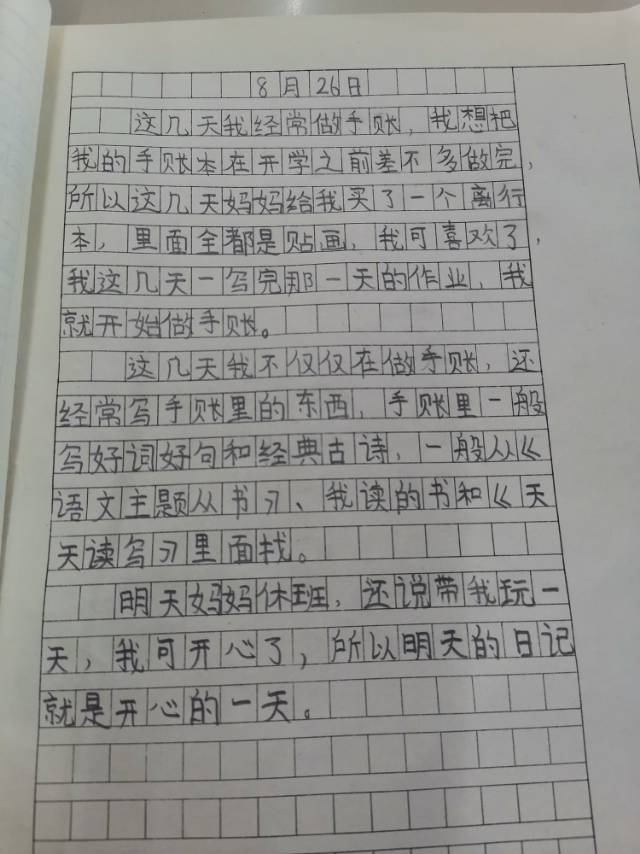 8月26日
这几天我经常做手账，我想把
我的手账本在开学之前差不多做完，
所以这几天妈妈给我买了一个离行
本，里面全都是贴画，我可喜欢了，
我这几天一写完那一天的作业，我
就开始做手账。
这几天我不仅仅在做手账，还
经常写手账里的东西，手账里一般
写好词好句和经典古诗，一般从《
语文主题从书习、我读的书和《天
天读写习里面找。
明天妈妈休班，还说带我玩一
天，我可开心了，所以明天的日记
就是开心的一天。